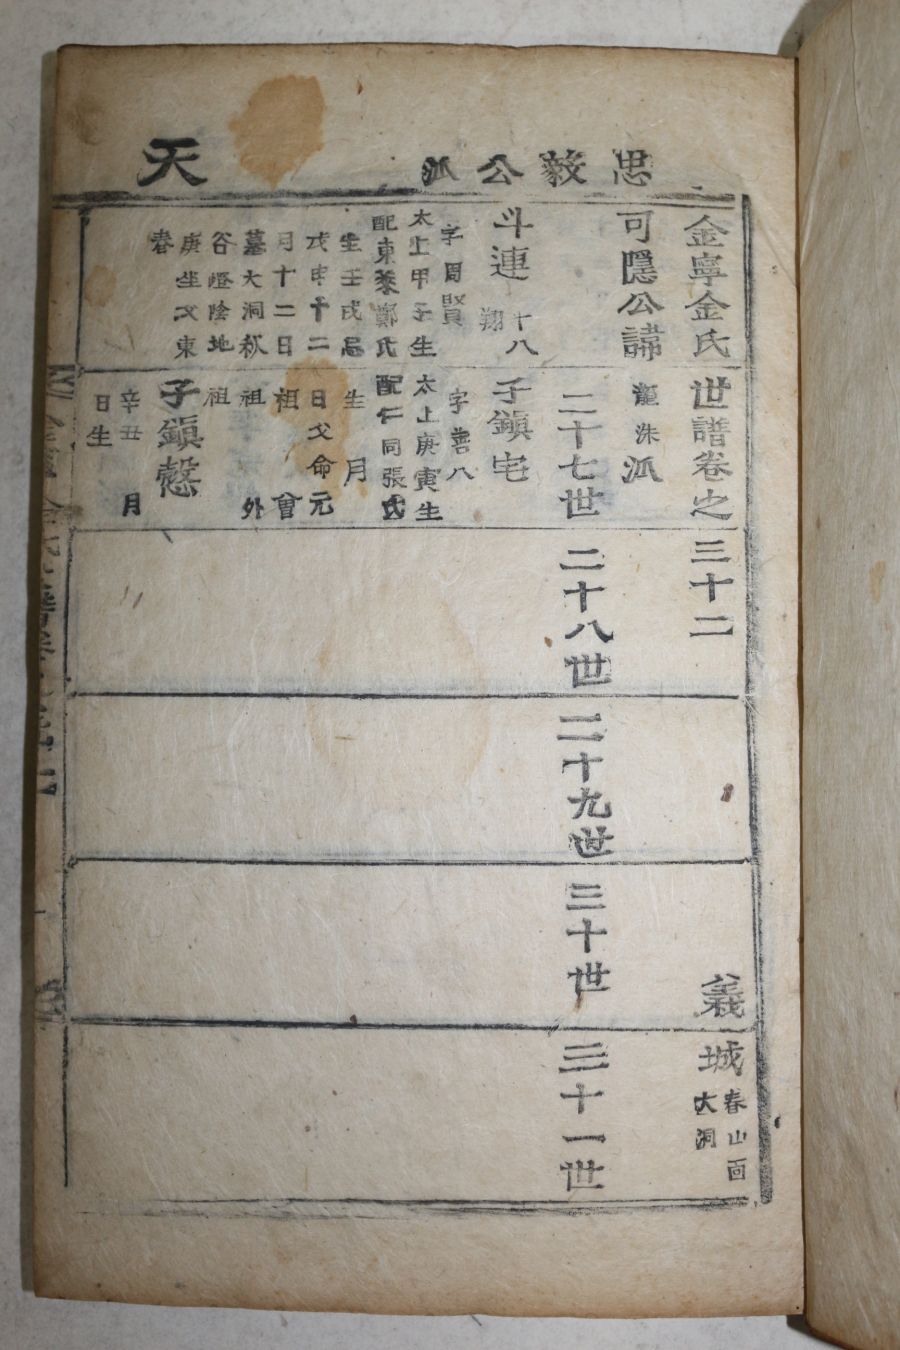 忠毅公派
天
金寧金氏世譜卷之三十二
義城 春山面
大洞
可隱公諱
龍洙派
二十七世
二十八世
二十九世
三十世
三十一世
斗連
十八
翔
字周賢
太上甲子生
配東萊鄭氏
生壬戌忌
戊申十二
月十二日
墓大洞杦
谷嶝陰地
庚坐父東
春
子鎭宅
字善八
太上庚寅生
配仁同張氏
生 月
日父命元
祖 曾
祖 外
祖
子鎭慤
辛丑 月
日生